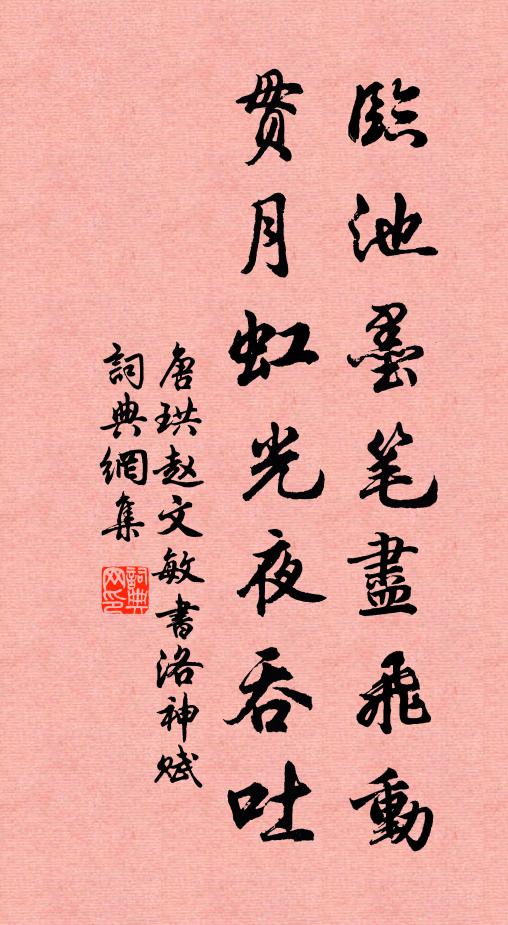 臨池墨笔盡飛動
貫月虹光夜吞吐
唐珙赵文敏書洛神赋
詞典網集
詞典网印